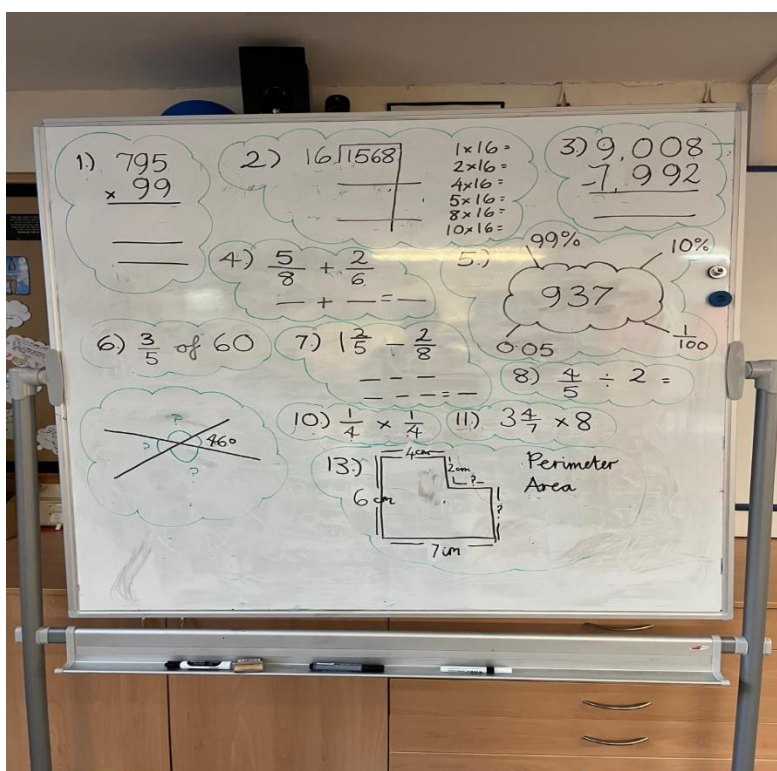 1.) 795
× 99
2) 16 1568
1×16=
2×16=
4×16=
5×16=
8×16=
10×16=
3) 9,008
-7,992
4) 5/8 + 2/6
— + — = —
5.) 99% 10%
937
0.05 1/100
6) 3/5 of 60
7) 1 2/5 - 2/8
— — —
— — — = —
8) 4/5 ÷ 2 =
?
? 46°
?
10.) 1/4 × 1/4
11.) 3 4/7 × 8
13.) 4cm
2cm
?
6cm
?
7cm
Perimeter
Area